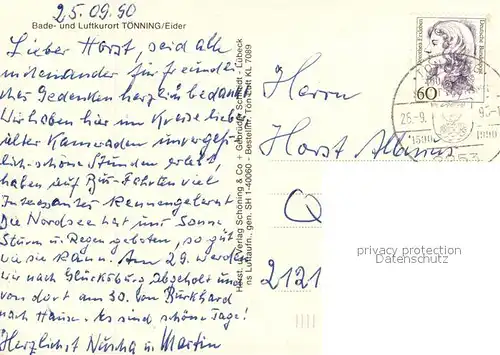 25.09.90
Bade- und Luftkurort TÖNNING/Eider
Lieber Horst, seid alle
miteinander für freundli
ches Gedenken herzlich bedankt
Wir haben hier im Kreise liebe
alter Kameraden unvergeß-
lich-schöne Stunden erlebt,
haben auf Bus-Fahrten viel
Interessantes kennengelernt
Die Nordsee hat uns Sonne
Sturm u. Regen geboten, so gut
wie sie kann. Am 29. werden
wir nach Glücksburg abgeholt und
von dort am 30. von Burkhard
nach Hause. Es sind schöne Tage!
Herzlichst Nuscha u. Martin
Horst. u. Verlag Schöning & Co · Gebrüder Schmidt · Lübeck
ns Luftaufn., gen. SH 1-40060 - Bestellnr. Tön. Luft KL 7089
Herrn
Horst
2121
Deutsche Bundespost
60
26.-9.
1590 1990
privacy protection
Datenschutz